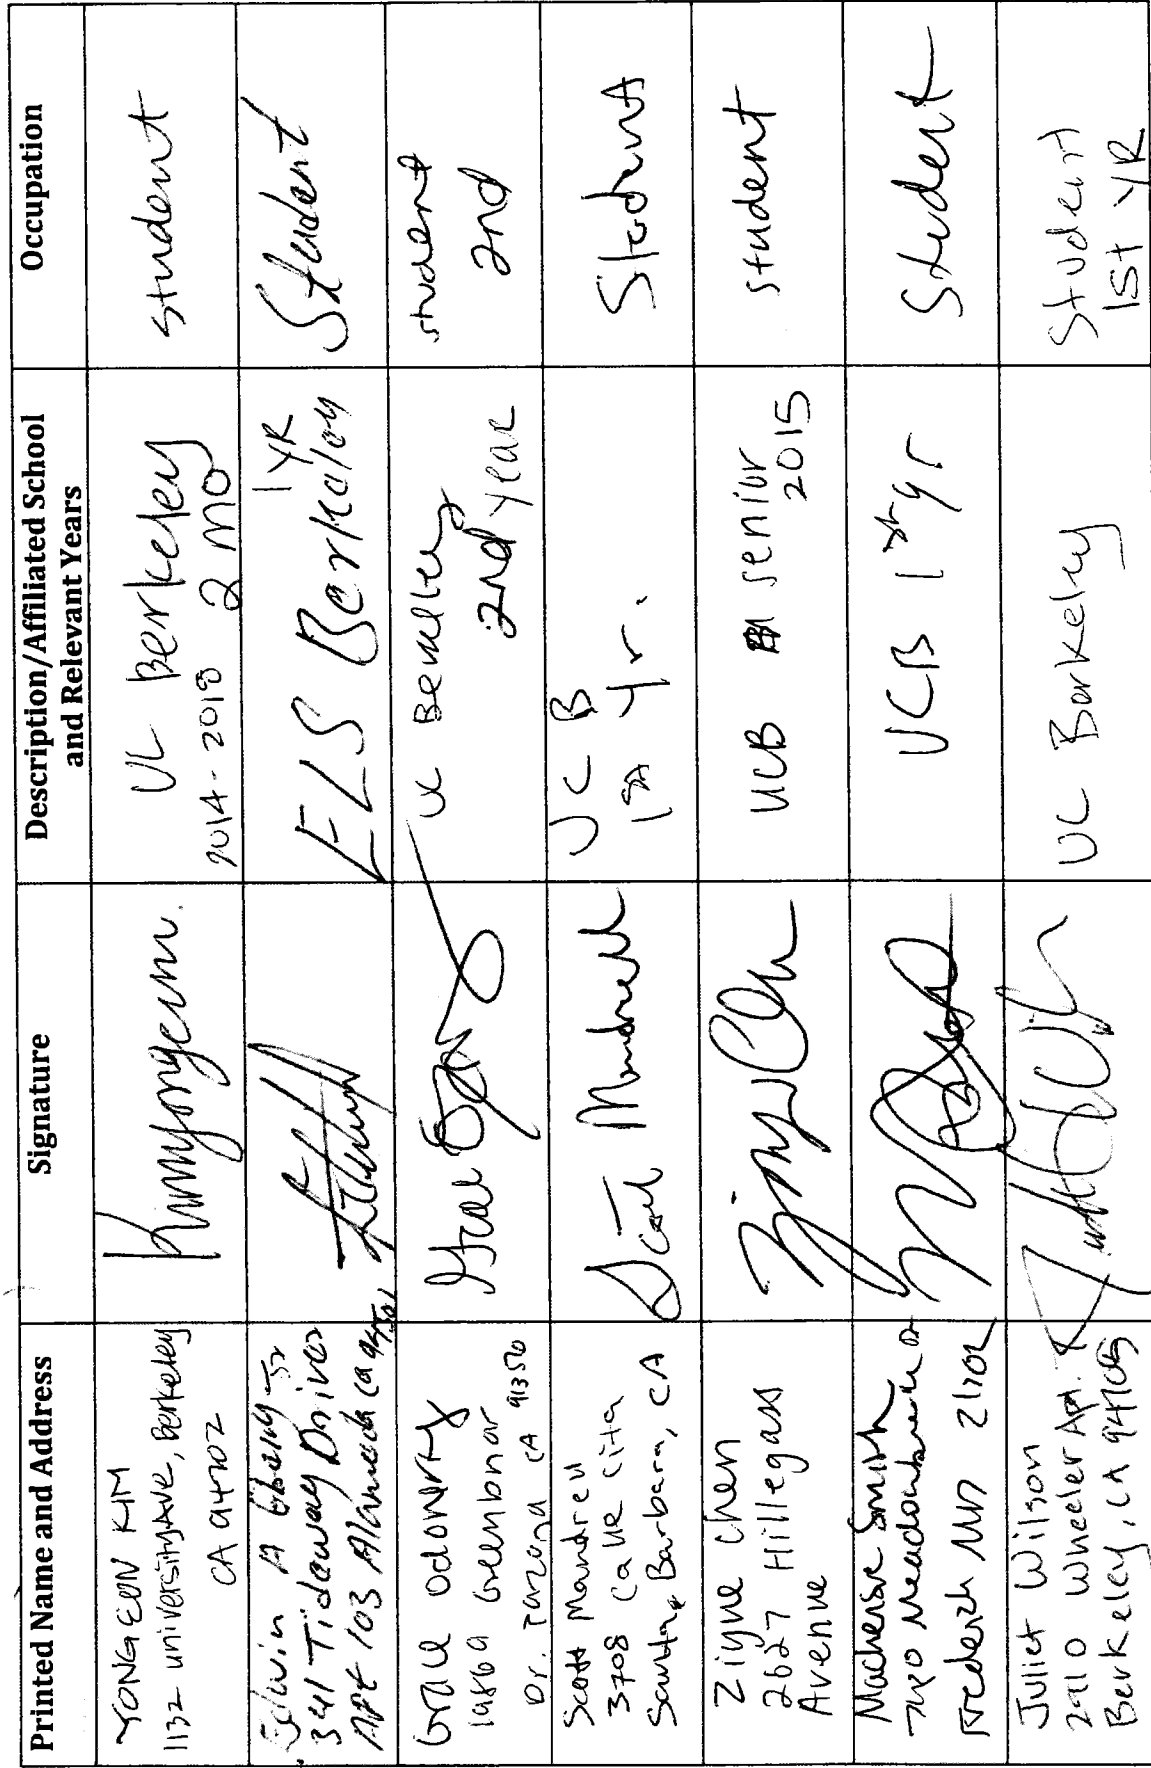 Printed Name and Address
Signature
Description/Affiliated School
and Relevant Years
Occupation
YONGEON KIM
1132 university Ave, Berkeley
CA 94702
Kimyongeon.
UC Berkeley
2014-2018 2 mo
student
Edwin A
341 Tideway Drive
APt 103 Alameda ca 94501
ELS Berkeley
1 YR
Student
Grace Odonerty
19869 Greenbriar
Dr. Tarzana CA 91356
Grace
UC Berkeley
2nd year
student
2nd
Scott Mandrell
3708 Calle Cita
Santa Barbara, CA
Scott Mandrell
UCB
1st Yr.
Student
Ziyue Chen
2627 Hillegass
Avenue
Ziyue Chen
UCB senior
2015
student
Mackensie Smith
Meadowbrook Dr
Frederick MD 21702
UCB 1st yr
Student
Juliet Wilson
2910 Wheeler Apt. R
Berkeley, CA 94705
UC Berkeley
Student
1st YR